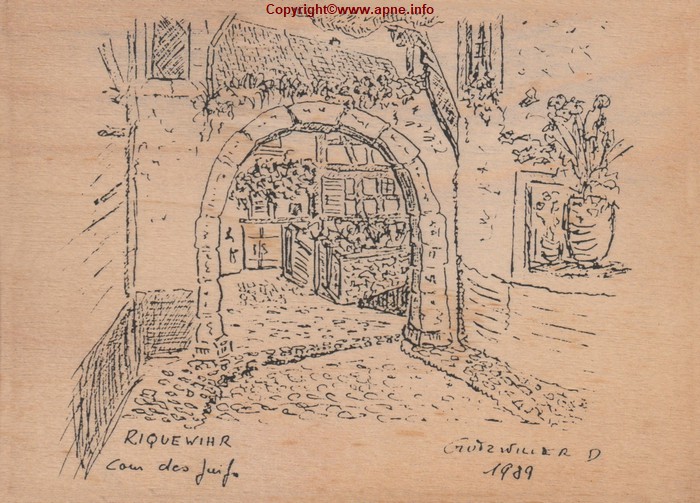 Copyright©www.apne.info
RIQUEWIHR
Cour des Juifs
GUTZWILLER D
1989